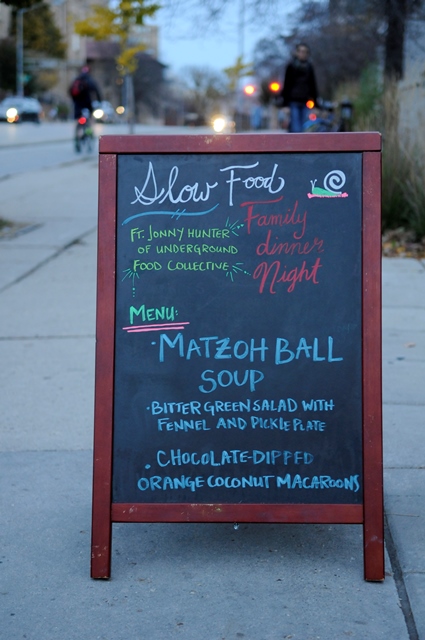 Slow Food
Family
dinner
Night
FT. JONNY HUNTER
OF UNDERGROUND
FOOD COLLECTIVE
MENU:
· MATZOH BALL
SOUP
· BITTER GREEN SALAD WITH
FENNEL AND PICKLE PLATE
· CHOCOLATE-DIPPED
ORANGE COCONUT MACAROONS